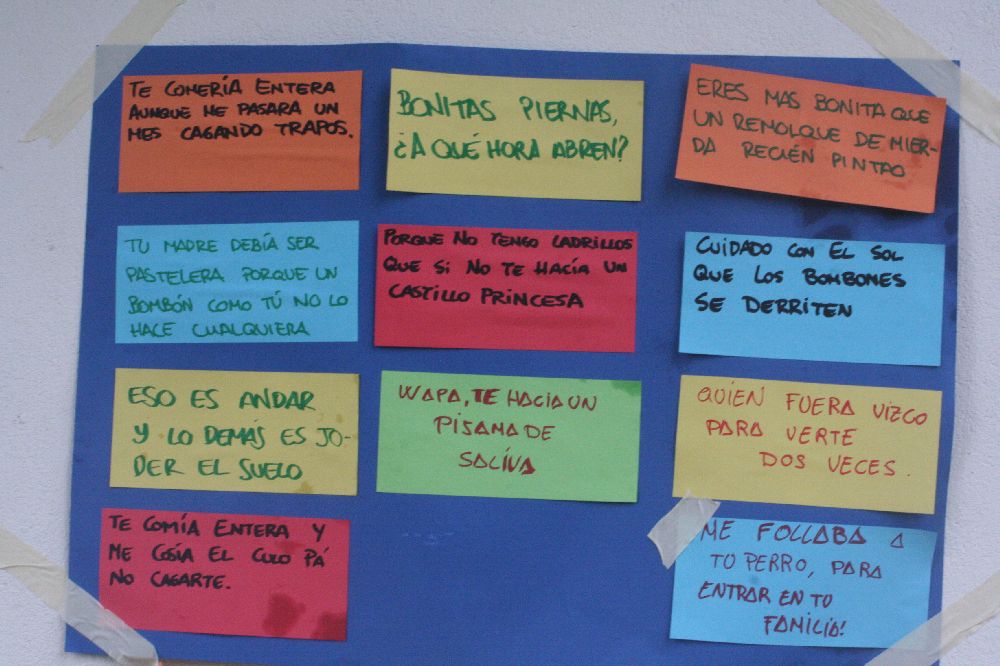 TE COMERÍA ENTERA
AUNQUE ME PASARA UN
MES CAGANDO TRAPOS.
BONITAS PIERNAS,
¿A QUÉ HORA ABREN?
ERES MAS BONITA QUE
UN REMOLQUE DE MIER-
DA RECIÉN PINTAO
TU MADRE DEBÍA SER
PASTELERA PORQUE UN
BOMBÓN COMO TÚ NO LO
HACE CUALQUIERA
PORQUE NO TENGO LADRILLOS
QUE SI NO TE HACÍA UN
CASTILLO PRINCESA
CUIDADO CON EL SOL
QUE LOS BOMBONES
SE DERRITEN
ESO ES ANDAR
Y LO DEMÁS ES JO-
DER EL SUELO
WAPA, TE HACIA UN
PIJAMA DE
SALIVA
QUIEN FUERA VIZCO
PARA VERTE
DOS VECES.
TE COMÍA ENTERA Y
ME COSÍA EL CULO PÁ
NO CAGARTE.
ME FOLLABA A
TU PERRO, PARA
ENTRAR EN TU
FAMILIA!